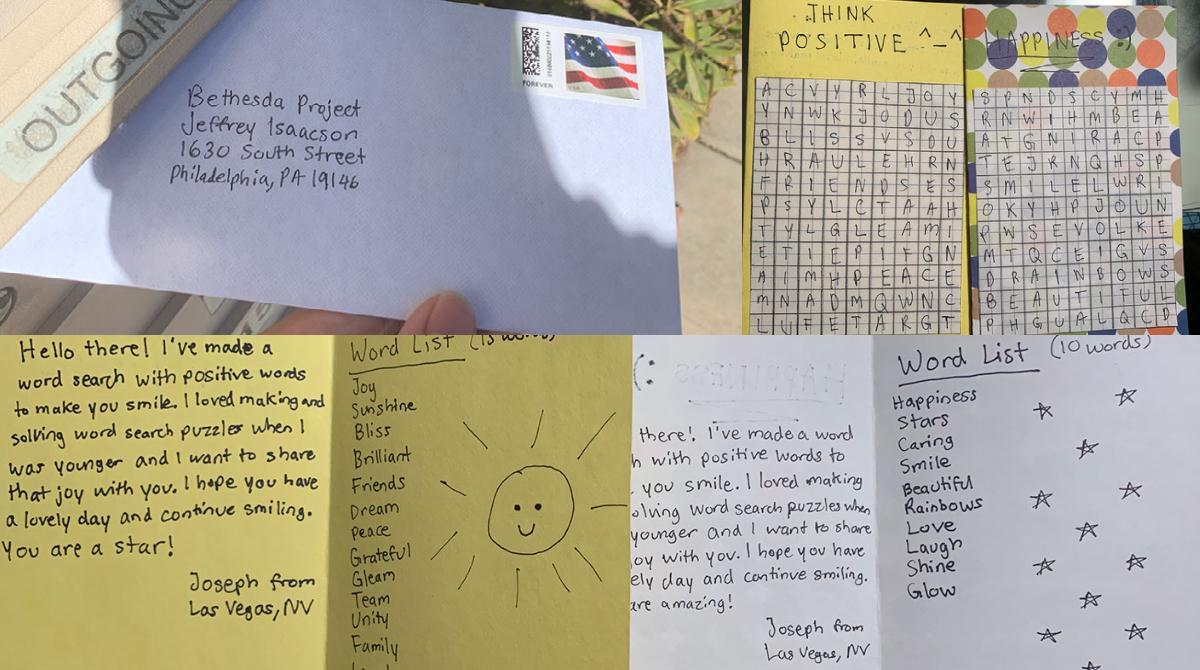 OUTGOING
FOREVER
USA
Bethesda Project
Jeffrey Isaacson
1630 South Street
Philadelphia, PA 19146
THINK
POSITIVE ^_^
A C V V R L J O Y
Y N W K J O D U S
B L I S S V S D U
H R A U L E H R N
F R I E N D S E S
P S Y L C T A A H
T Y L G L E A M I
E T I E P I F G N
A I M H P E A C E
M N A D M Q W N C
L U F E T A R G T
HAPPINESS :)
S P N D S C Y M H
R N W I H M B E A
A T G N I R A C P
T E J R N Q H S P
S M I L E L W R I
O K Y H P J O U N
P W S E V O L K E
M T Q C E I G V S
D R A I N B O W S
B E A U T I F U L
P H G U A L Q C D
Hello there! I've made a
word search with positive words
to make you smile. I loved making and
solving word search puzzles when I
was younger and I want to share
that joy with you. I hope you have
a lovely day and continue smiling.
You are a star!
Joseph from
Las Vegas, NV
Word List
Joy
Sunshine
Bliss
Brilliant
Friends
Dream
Peace
Grateful
Gleam
Team
Unity
Family
HAPPINESS :)
there! I've made a word
h with positive words to
you smile. I loved making
olving word search puzzles when
younger and I want to share
oy with you. I hope you have
ely day and continue smiling.
are amazing!
Joseph from
Las Vegas, NV
Word List (10 words)
Happiness
Stars
Caring
Smile
Beautiful
Rainbows
Love
Laugh
Shine
Glow